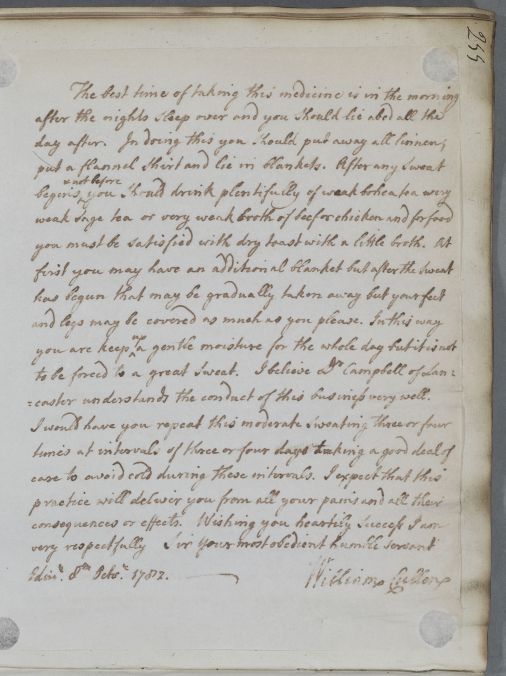 244
The best time of taking this medicine is in the morning
after the nights sleep over and you should lie abed all the
day after. In doing this you should put away all linnen,
put a flannel shirt and lie in blankets. After any sweat
begins & not before you should drink plentifully of weak bohea tea very
weak Sage tea or very weak broth of beef or chicken and for food
you must be satisfied with dry toast with a little broth. At
first you may have an additional blanket but after the sweat
has begun that may be gradually taken away but your feet
and legs may be covered as much as you please. In this way
you are keep up a gentle moisture for the whole day but it is not
to be forced to a great Sweat. I believe Dr Campbell of Lan=
=caster understands the conduct of this business very well.
I would have you repeat this moderate sweating three or four
times at intervals of three or four days taking a good deal of
care to avoid cold during these intervals. I expect that this
practice will deliver you from all your pains and all their
consequences or effects. Wishing you heartily Success I am
very respectfully Sir Your most obedient humble servant
Edinr. 8th Octor. 1782. William Cullen